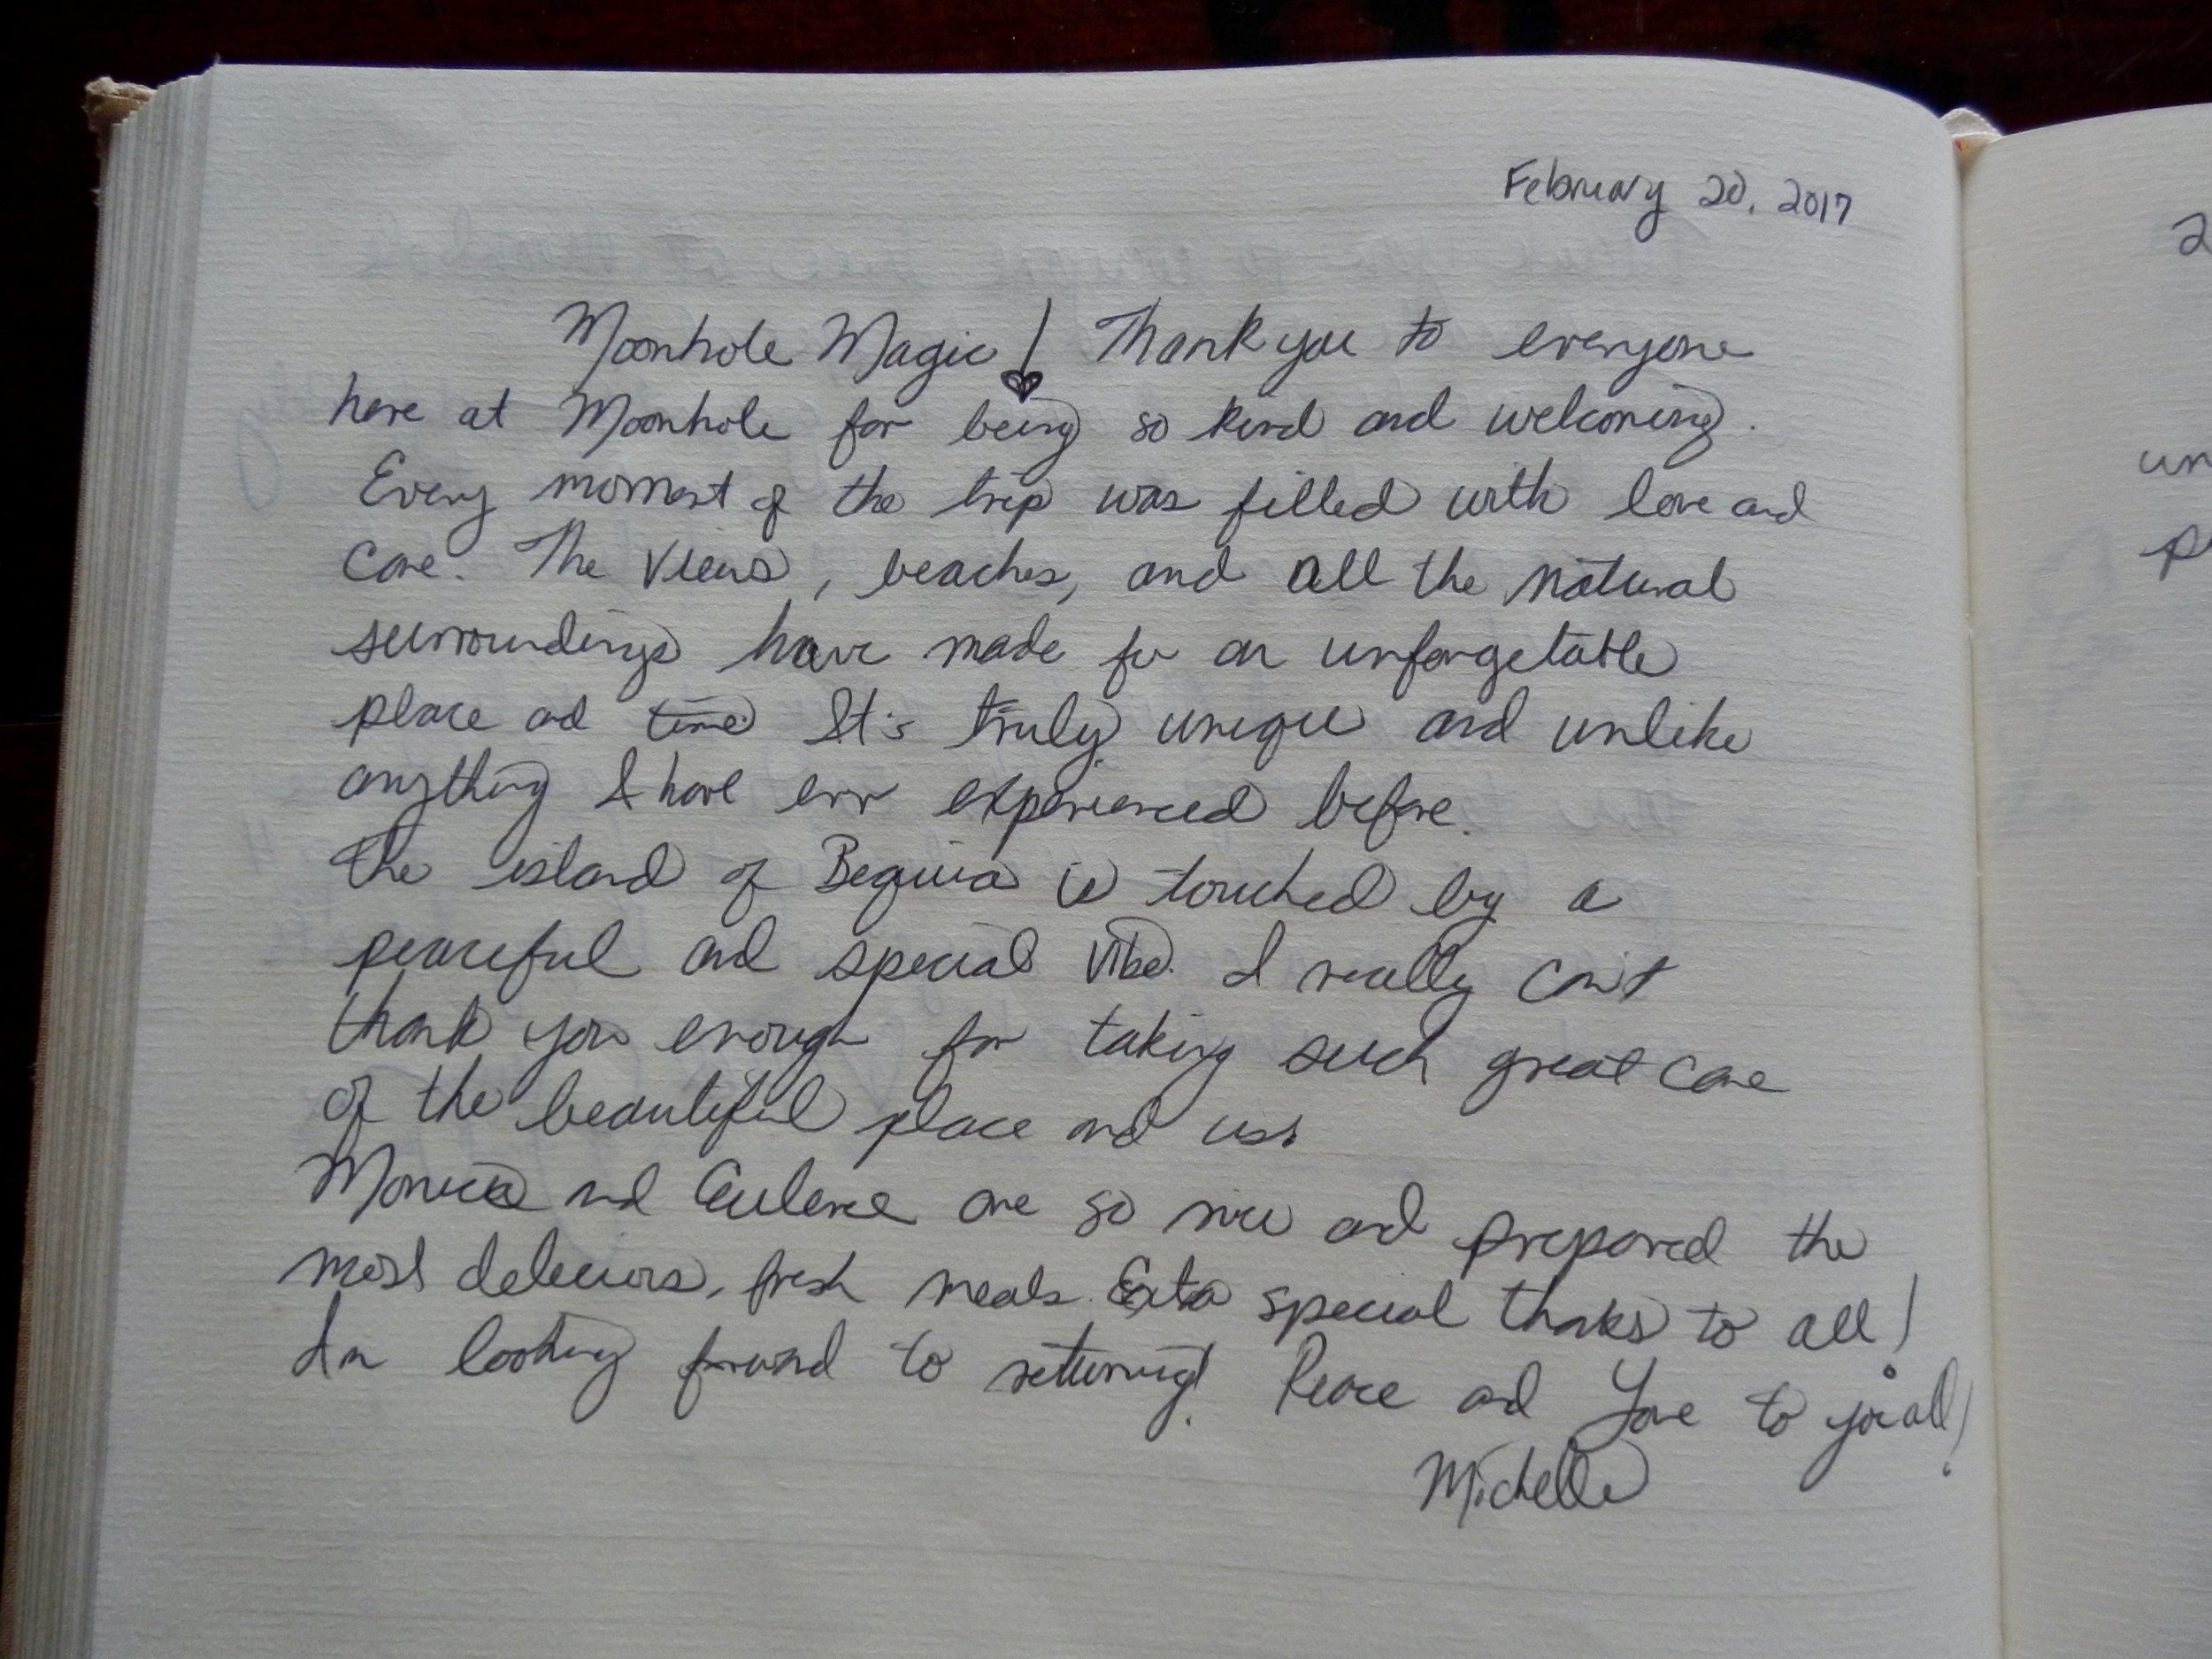 February 20, 2017
Moonhole Magic! Thank you to everyone
here at Moonhole for being so kind and welcoming.
Every moment of the trip was filled with love and
care. The views, beaches, and all the natural
surroundings have made for an unforgetable
place and time. It's truly unique and unlike
anything I have ever experienced before.
The island of Bequia is touched by a
peaceful and special vibe. I really can't
thank you enough for taking such great care
of the beautiful place and us.
Monica and are so nice and prepared the
most delicious, fresh meals. Exta special thanks to all!
I'm looking forward to returning! Peace and Love to you all!
Michelle
2
un